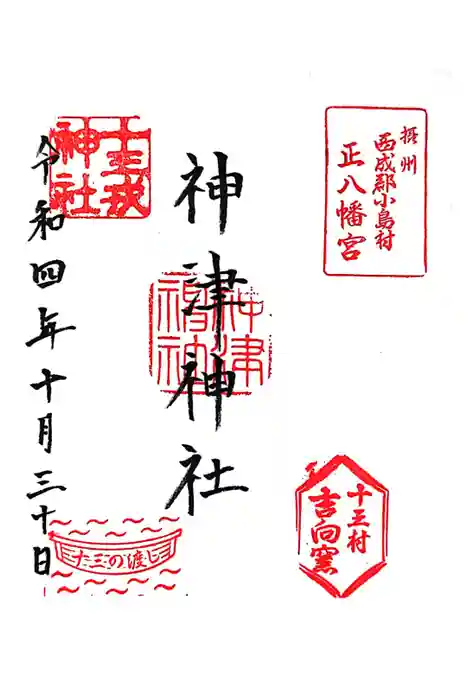 摂州
西成郡小島村
正八幡宮
十三村
吉向窯
神津神社
神津
十三戎
神社
令和四年十月三十日
十三の渡し